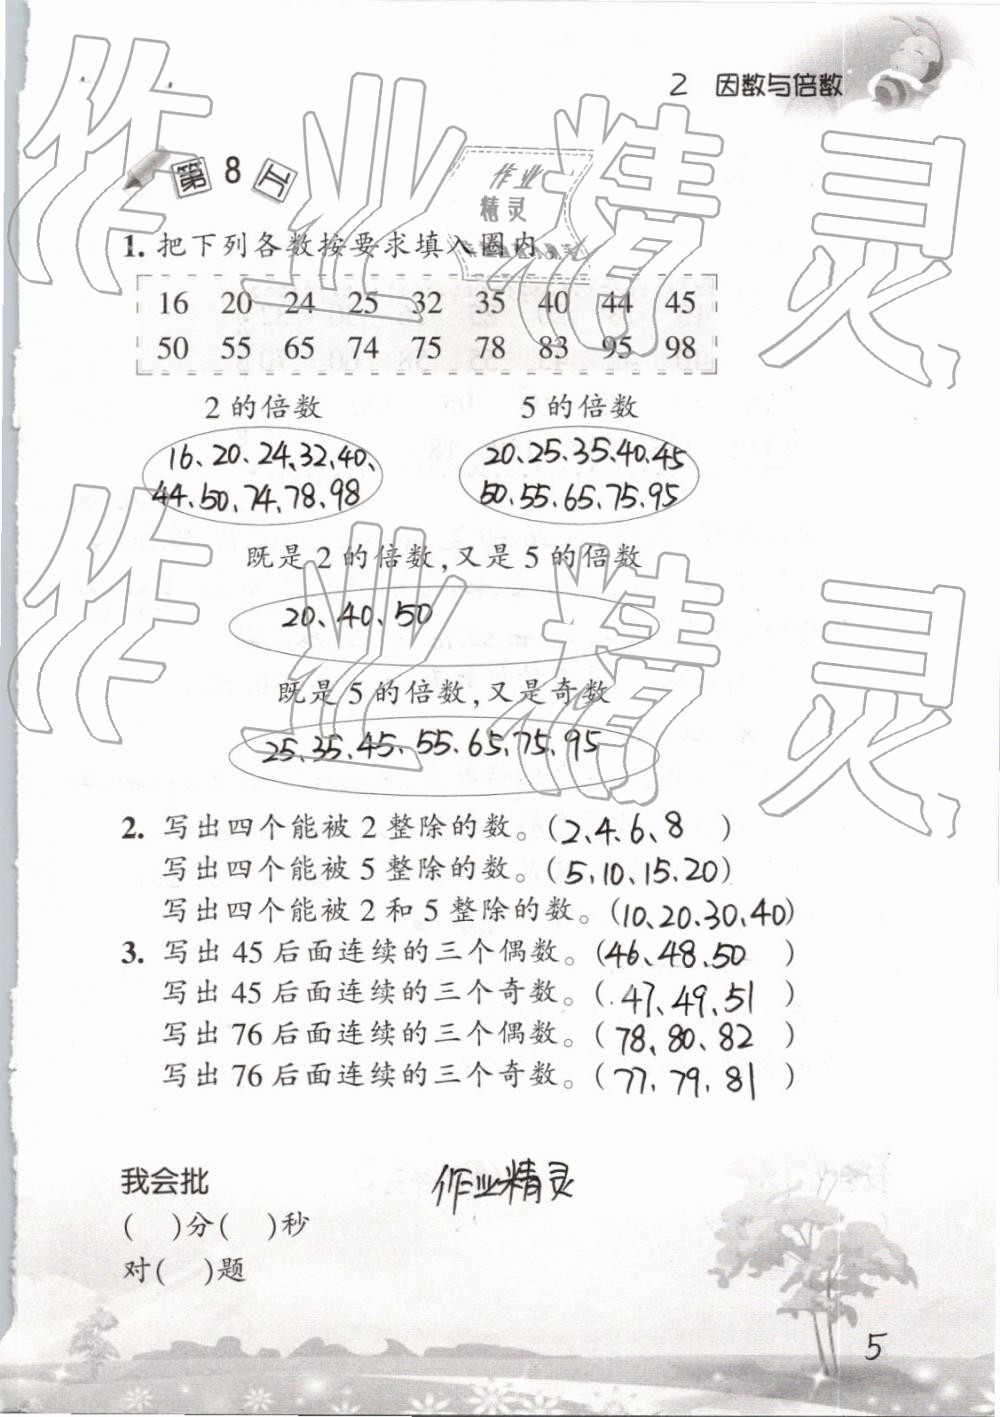 2 因数与倍数
第 8 页
1. 把下列各数按要求填入圈内
16 20 24 25 32 35 40 44 45
50 55 65 74 75 78 83 95 98
2 的倍数 5 的倍数
16、20、24、32、40、 20、25、35、40、45
44、50、74、78、98 50、55、65、75、95
既是 2 的倍数,又是 5 的倍数
20、40、50
既是 5 的倍数,又是奇数
25、35、45、55、65、75、95
2. 写出四个能被 2 整除的数。(2、4、6、8 )
写出四个能被 5 整除的数。(5、10、15、20)
写出四个能被 2 和 5 整除的数。(10、20、30、40)
3. 写出 45 后面连续的三个偶数。(46、48、50 )
写出 45 后面连续的三个奇数。(47、49、51 )
写出 76 后面连续的三个偶数。(78、80、82 )
写出 76 后面连续的三个奇数。(77、79、81 )
我会批
作业精灵
( )分( )秒
对( )题
5
作业精灵
作业精灵
作业
精灵